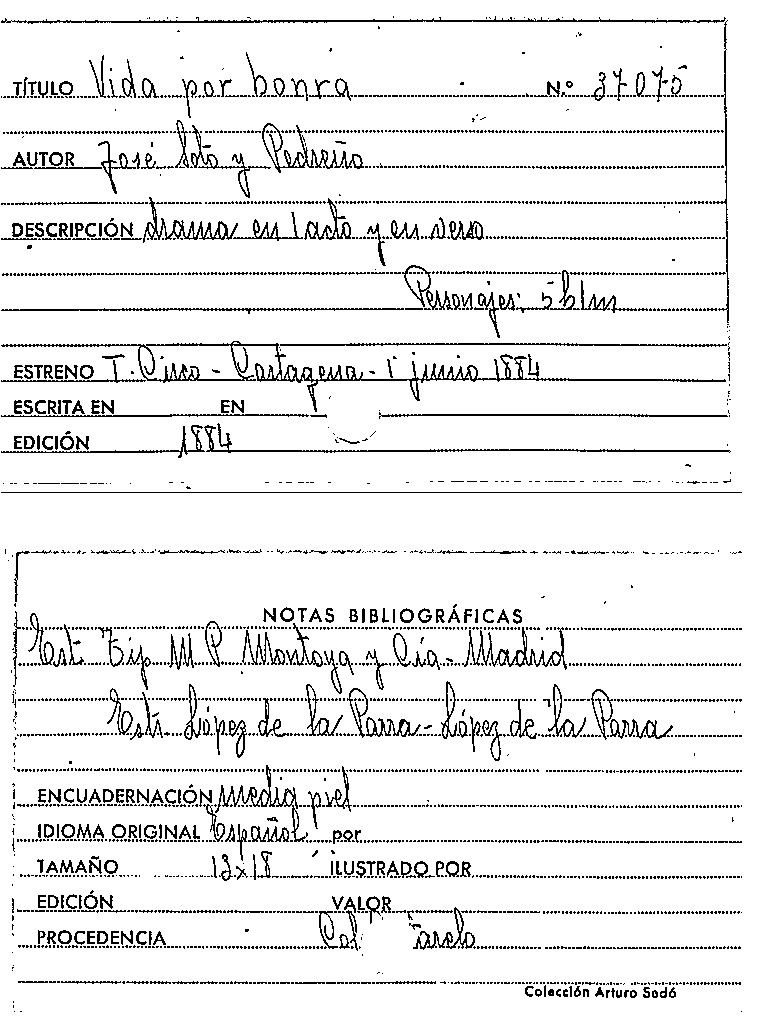 TÍTULO Vida por honra N.º 37075
AUTOR José Soto y Pedreño
DESCRIPCIÓN drama en 1 acto y en verso
Personajes: 5 h 1 m
ESTRENO T. Circo - Cartagena - 1 junio 1884
ESCRITA EN EN
EDICIÓN 1884
NOTAS BIBLIOGRÁFICAS
Est. Tip. M P Montoya y Cía - Madrid
Estr. López de la Parra - López de la Parra
ENCUADERNACIÓN media piel
IDIOMA ORIGINAL Español por
TAMAÑO 13x18 ILUSTRADO POR
EDICIÓN VALOR
PROCEDENCIA Col
Colección Arturo Sedó